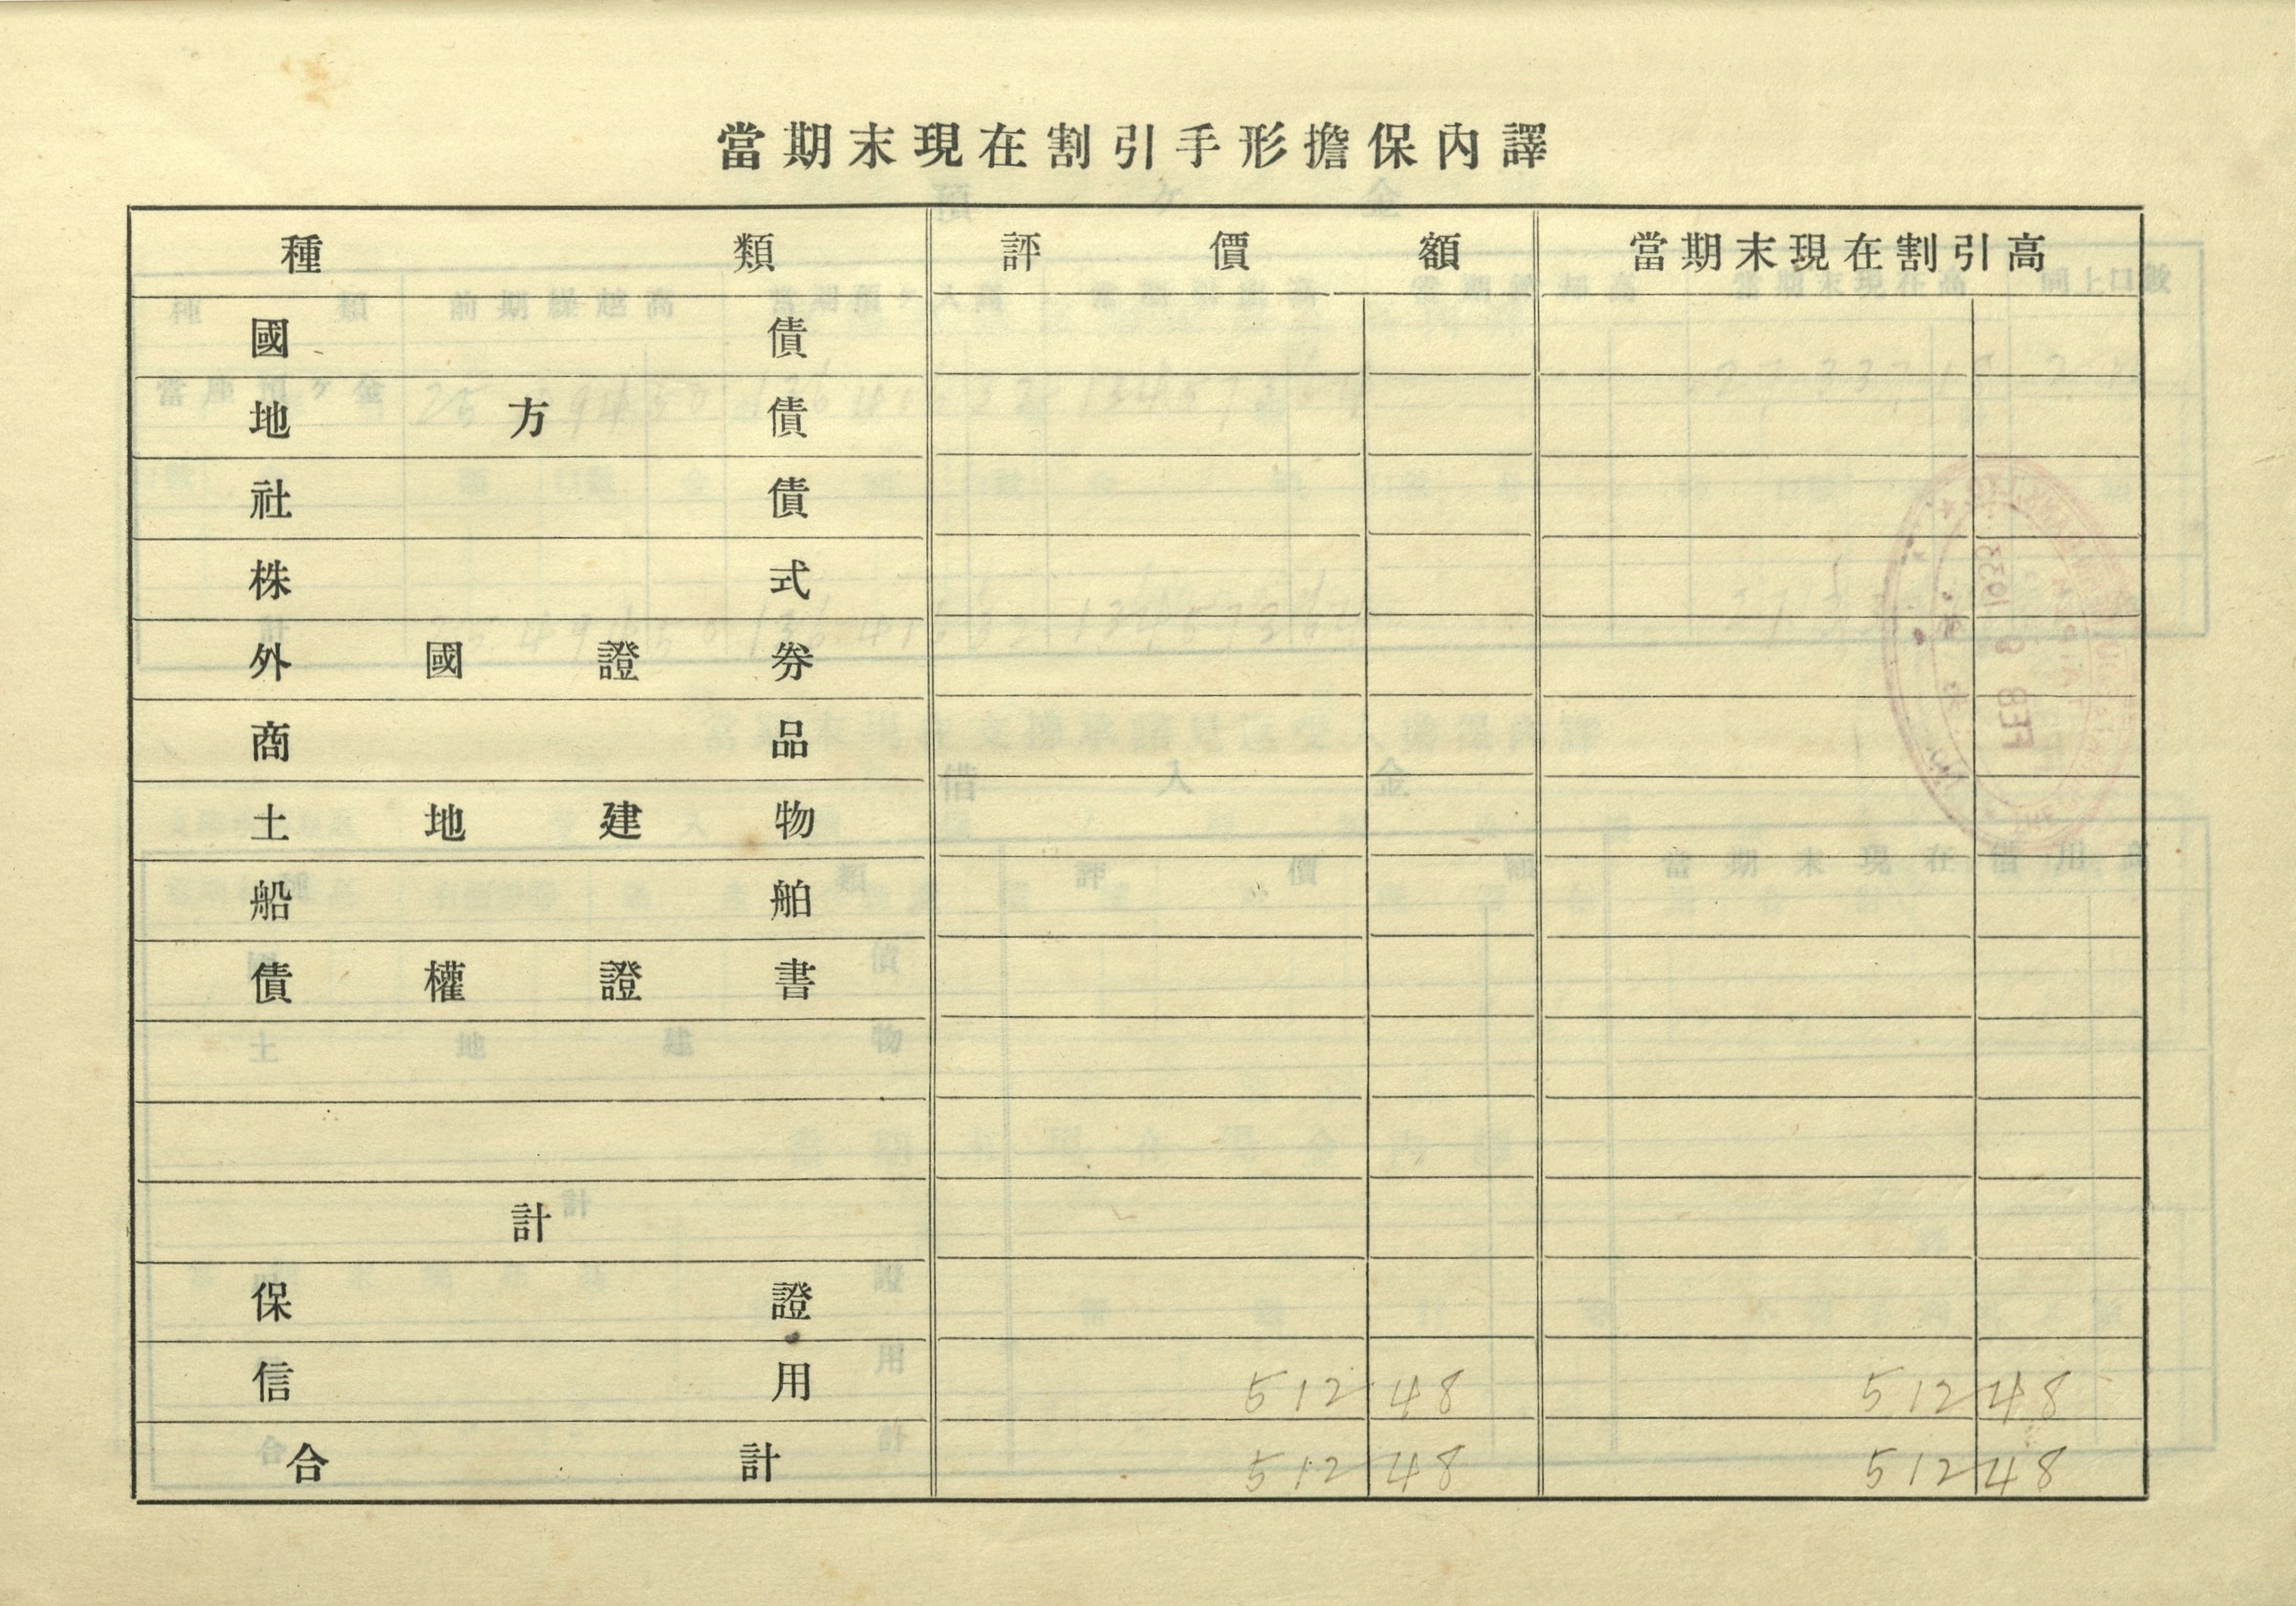 當期末現在割引手形擔保內譯
種類 評價額 當期末現在割引高
國債
地方債
社債
株式
外國證券
商品
土地建物
船舶
債權證書
計
保證
信用 512 48 512 48
合計 512 48 512 48